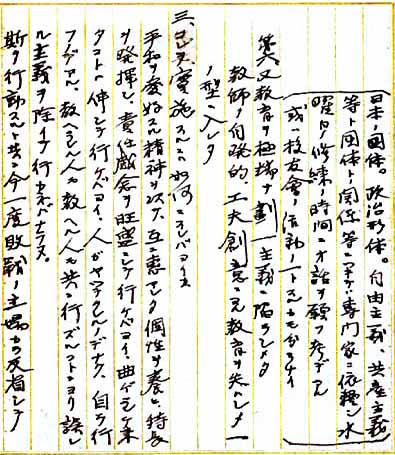 日本ノ国体。政治形体。自由主義、共産主義
等ト国体ト関係等ニツキ、専門家ニ依頼シ水
曜日ノ修練ノ時間ニオ話ヲ願フ予定デアル
或ハ校友会ノ活動ノ一トスルモ
第六又教育ヲ極端ナ劃一主義ニ陥ラシメタ
教師ノ自発的、工夫創意ニヨル教育ヲ失ハシメ一
ノ型ニ入レタ
三、是正実施スルニハ如何ニスレバヨイカ
平和ヲ愛好スル精神ヲ以テ互ニ恵マレタ個性ヲ養ヒ特長
ヲ発揮シ、責任感念ヲ旺盛ニシテ行クベヨイ、曲ゲラレテ来
タコトヘ伸シテ行ケバヨイ、人ガヤラスノデナク、自ラ行
フノデアル、教ヘラレル人モ教ヘル人モ共ニ行ズルコトニヨリ誤レ
ル主義ヲ除イテ行カネバナラヌ。
斯ク行動スルト共ニ今一度敗戦ノ主因ヲ反省シテ